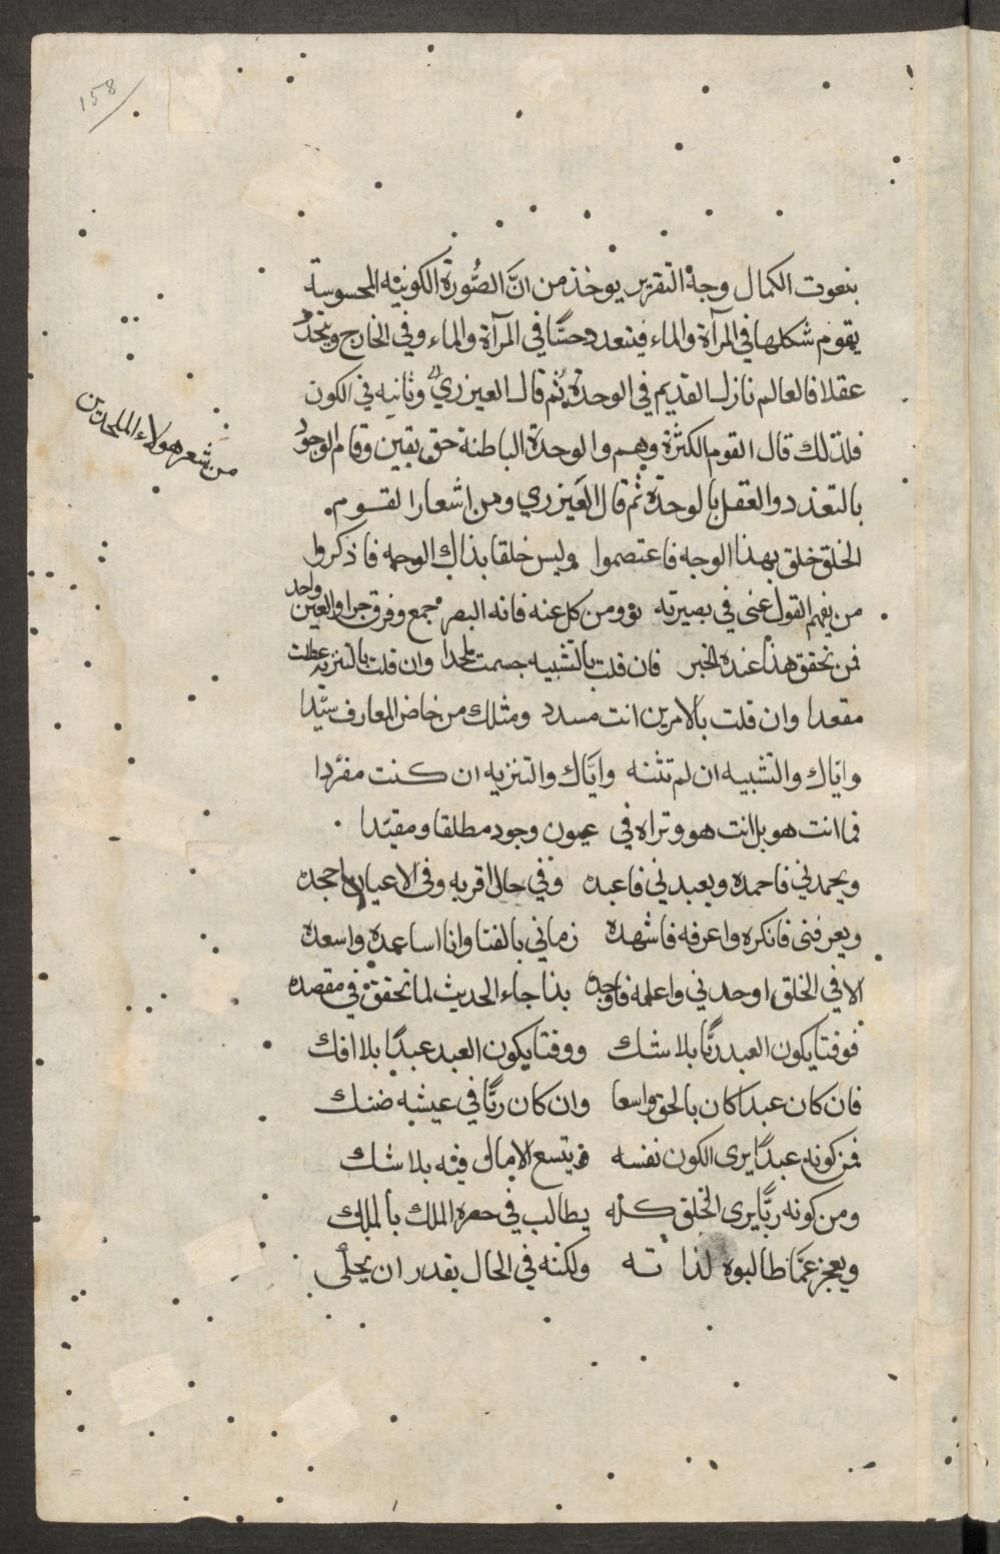 158
بنعوت الكمال وجه التقرير يوخذ من انَّ الصُّورة الكونية المحسوسة
يقوم شكلها في المرآة والماء فيتعدد حسًّا في المرآة والماء وفي الخارج ويتحدُ
عقلا فالعالم نازل القديم في الوحدة ثم قال العيزري وثانيه في الكون
فلذلك قال القوم الكثرة وهم والوحدة الباطنة حق يقين وقام الوجود
بالتعدد والعقل بالوحدة ثم قال العيزري ومن اشعار القسوم.
الخلق خلق بهذا الوجه فاعتصموا وليس خلقا بذاك الوجه فاذكروا
من يفهم القول عنى في بصيرته نؤومن كل عنه فانه البصر مجمع وفرق جرا والعين واحد
فمن تحقق هذا عنده الخبر فان قلت بالتشبيه جسمت ملحدا وان قلت بالتنزيه عطلت
مقعدا وان قلت بالامرين انت مسدد ومثلك من خاض المعارف سيّدا
واياك والتشبيه ان لم تثنه وايَّاك والتنزيه ان كنت مفردا
فما انت هو بل انت هو وتراه في عيون وجود مطلقا ومقيّدا
ويحمدني فاحمده ويعبدني فاعبده وفي حال اقربه وفى الاعيان اجحده
ويعرفنى فانكره واعرفه فاشهده زماني بالفنا وانا اساعده واسعده
الا في الخلق اوحدني واعلمه فاوجده بذا جاء الحديث لما تحقق في مقصده
فوقتا يكون العبد ربًّا بلا شك ووقتا يكون العبد عبدًا بلا افك
فان كان عبدًا كان بالحق واسعا وان كان ربًّا في عيشه ضنك
فمن كونه عبدًا يرى الكون نفسه فيتسع الامال فيه بلا شك
ومن كونه ربًّا يرى الخلق كله يطالب في حضرة الملك بالملك
ويعجز عمّا طالبوه لذا ته ولكنه في الحال يقدر ان يحلّي
من شعر هولاء الملحدين